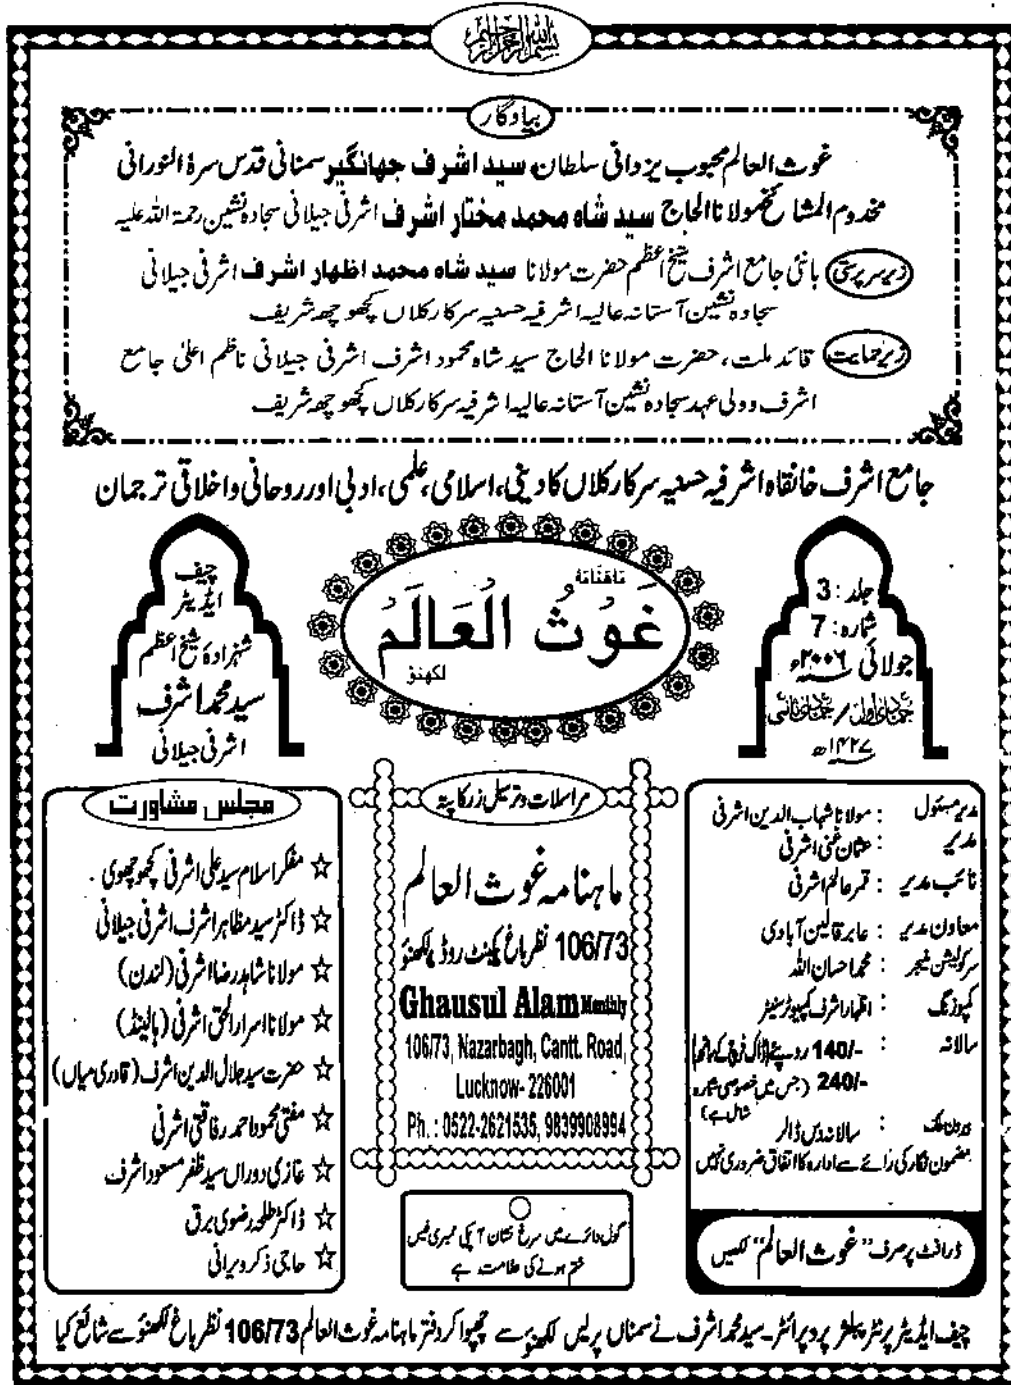 بسم الله الرحمن الرحيم
بیادگار
غوث العالم محبوب یزدانی سلطان سید اشرف جهانگیر سمنانی قدس سرۂ النورانی
مخدوم المشائخ مولانا الحاج سید شاہ محمد مختار اشرف اشرفی جیلانی سجادہ نشین رحمۃ اللہ علیہ
زیر سرپرستی بانئ جامع اشرف شیخ اعظم حضرت مولانا سید شاہ محمد اظہار اشرف اشرفی جیلانی
سجادہ نشین آستانہ عالیہ اشرفیہ حسنیہ سرکار کلاں کچھوچھہ شریف
زیر حمایت قائد ملت، حضرت مولانا الحاج سید شاہ محمود اشرف اشرفی جیلانی ناظم اعلیٰ جامع
اشرف و ولی عہد سجادہ نشین آستانہ عالیہ اشرفیہ سرکار کلاں کچھوچھہ شریف
جامع اشرف خانقاہ اشرفیہ حسنیہ سرکار کلاں کا دینی، اسلامی، علمی، ادبی اور روحانی و اخلاقی ترجمان
جلد: 3
شمارہ: 7
جولائی ۲۰۰۶ء
جمادی الاول/جمادی الثانی
۱۴۲۷ھ
ماهنامه
غوث العالم
لکھنؤ
چیف
ایڈیٹر
شہزادۂ شیخ اعظم
سید محمد اشرف
اشرفی جیلانی
مدیر مسئول : مولانا شہاب الدین اشرفی
مدیر : عثمان غنی اشرفی
نائب مدیر : قمر عالم اشرفی
معاون مدیر : عابر قالین آبادی
سرکولیشن منیجر : محمد احسان اللہ
کمپوزنگ : اظہار اشرف کمپیوٹر سینٹر
سالانہ : 140/- روپئے (ڈاک خرچ کے ساتھ)
240/- (جس میں خصوصی شمارہ
شامل ہے)
بیرون ملک : سالانہ دس ڈالر
مضمون نگار کی رائے سے ادارہ کا اتفاق ضروری نہیں
ڈرافٹ پر صرف "غوث العالم" لکھیں
مراسلات و ترسیل زر کا پتہ
ماہنامہ غوث العالم
106/73 نظر باغ کینٹ روڈ لکھنؤ
Ghausul Alam Monthly
106/73, Nazarbagh, Cantt. Road,
Lucknow- 226001
Ph. : 0522-2621535, 9839908994
گول دائرے میں سرخ نشان آپکی ممبری فیس
ختم ہونے کی علامت ہے
مجلس مشاورت
☆ مفکر اسلام سید علی اشرفی کچھوچھوی
☆ ڈاکٹر سید مظاہر اشرف اشرفی جیلانی
☆ مولانا شاہد رضا اشرفی (لندن)
☆ مولانا اسرار الحق اشرفی (ہالینڈ)
☆ حضرت سید جلال الدین اشرف (قادری میاں)
☆ مفتی محمود احمد رفاقتی اشرفی
☆ غازی دوراں سید ظفر مسعود اشرف
☆ ڈاکٹر طلحہ رضوی برق
☆ حاجی ذکر ویرانی
چیف ایڈیٹر پرنٹر پبلشر پروپرائٹر۔ سید محمد اشرف نے سمناں پریس لکھنؤ سے چھپوا کر دفتر ماہنامہ غوث العالم 106/73 نظر باغ لکھنؤ سے شائع کیا